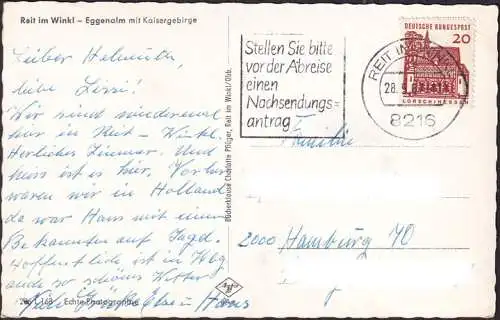 Reit im Winkl – Eggenalm mit Kaisergebirge
Lieber Helmuth,
liebe Lissi!
Wir sind wiedermal
hier in Reit-Winkl.
Herrliches Zimmer. Und
heiss ist es hier. Vorher
waren wir in Holland
da war Hans mit einem
Bekannten auf Jagd.
Hoffentlich ist in Hbg
auch so schönes Wetter
Viele Grüße Else u Hans
286 L 168 Echte Photographie
Bücherklause Charlotte Pflüger, Reit im Winkl/Obb.
Stellen Sie bitte
vor der Abreise
einen
Nachsendungs=
antrag
REIT IM WINKL
28. 9.
8216
DEUTSCHE BUNDESPOST
20
LORSCH/HESSEN
Familie
2000 Hamburg 70
Agfa